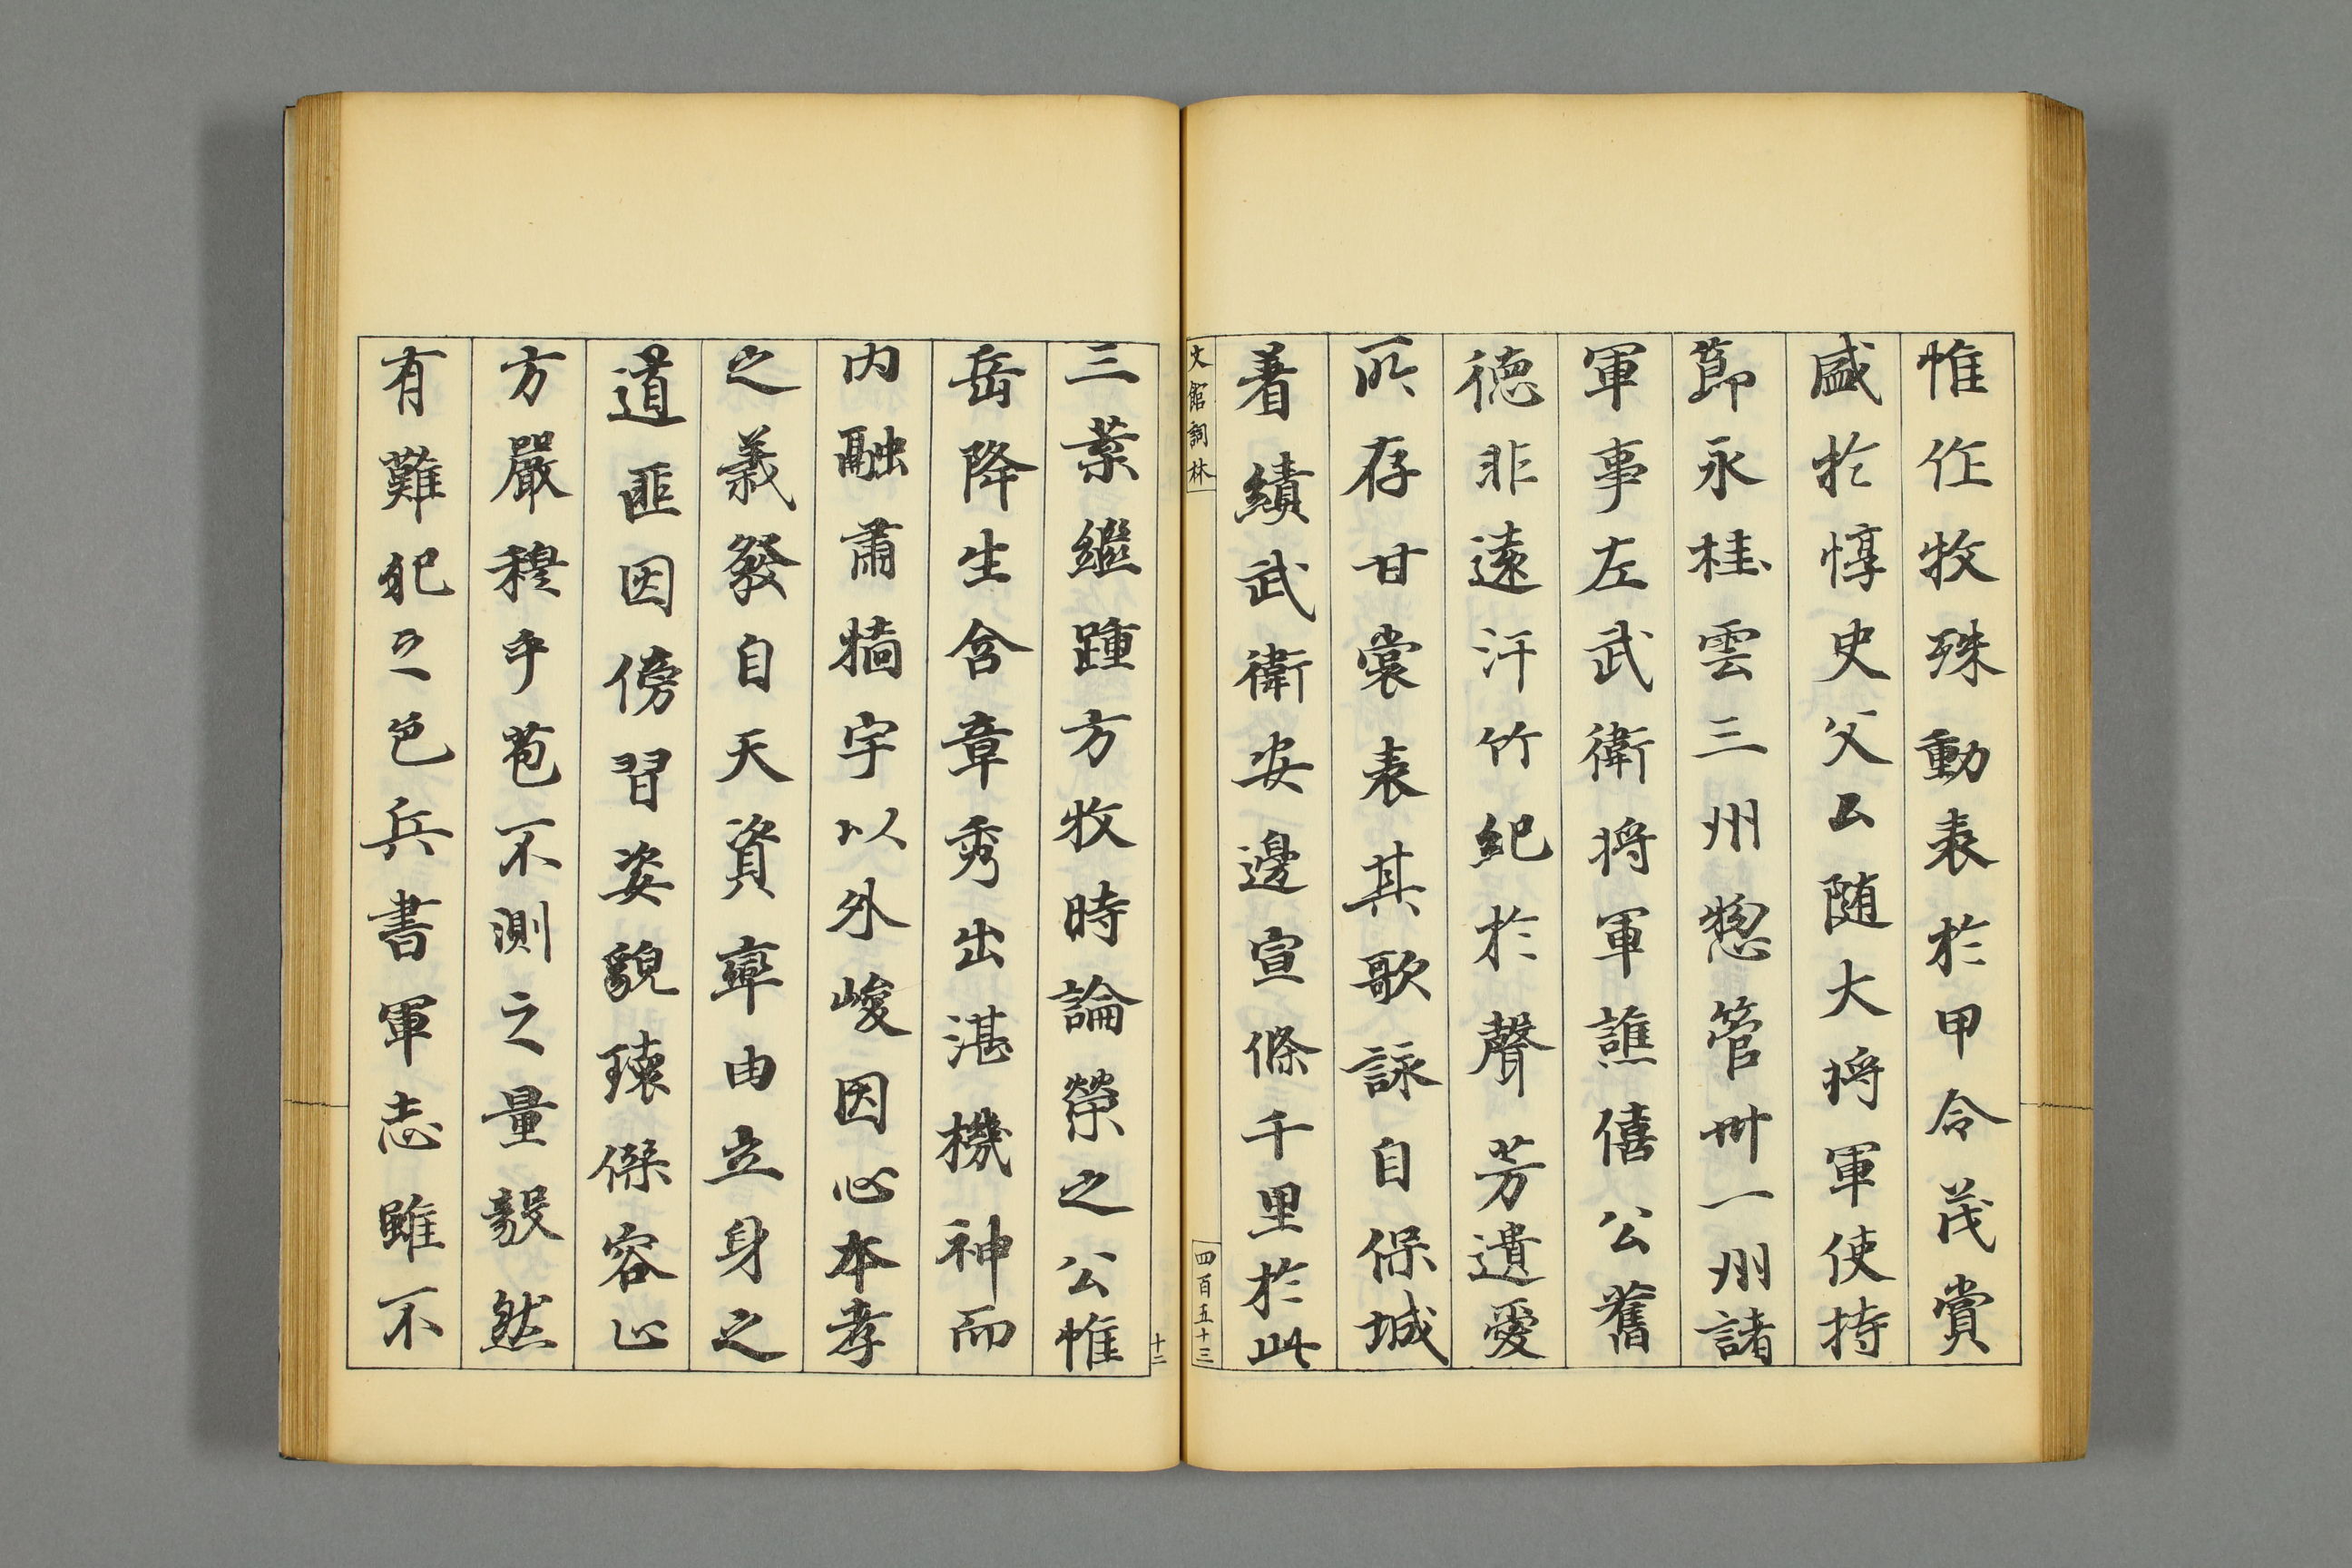 惟作牧殊動表於甲令茂賞
盛於惇史父公随大将軍使持
節永桂雲三州惣管卌一州諸
軍事左武衛将軍譙僖公舊
德非遠汗竹紀於聲芳遺愛
所存甘棠表其歌詠自保城
著績武衛安邊宣條千里於此
文館詞林
四百五十三
十二
三葉繼踵方牧時論榮之公惟
岳降生含章秀出湛機神而
内融肅牆宇以外峻因心本孝
之義發自天資率由立身之
道匪因傍習姿貌瓌傑容止
方嚴穆乎苞不測之量毅然
有難犯之色兵書軍志雖不